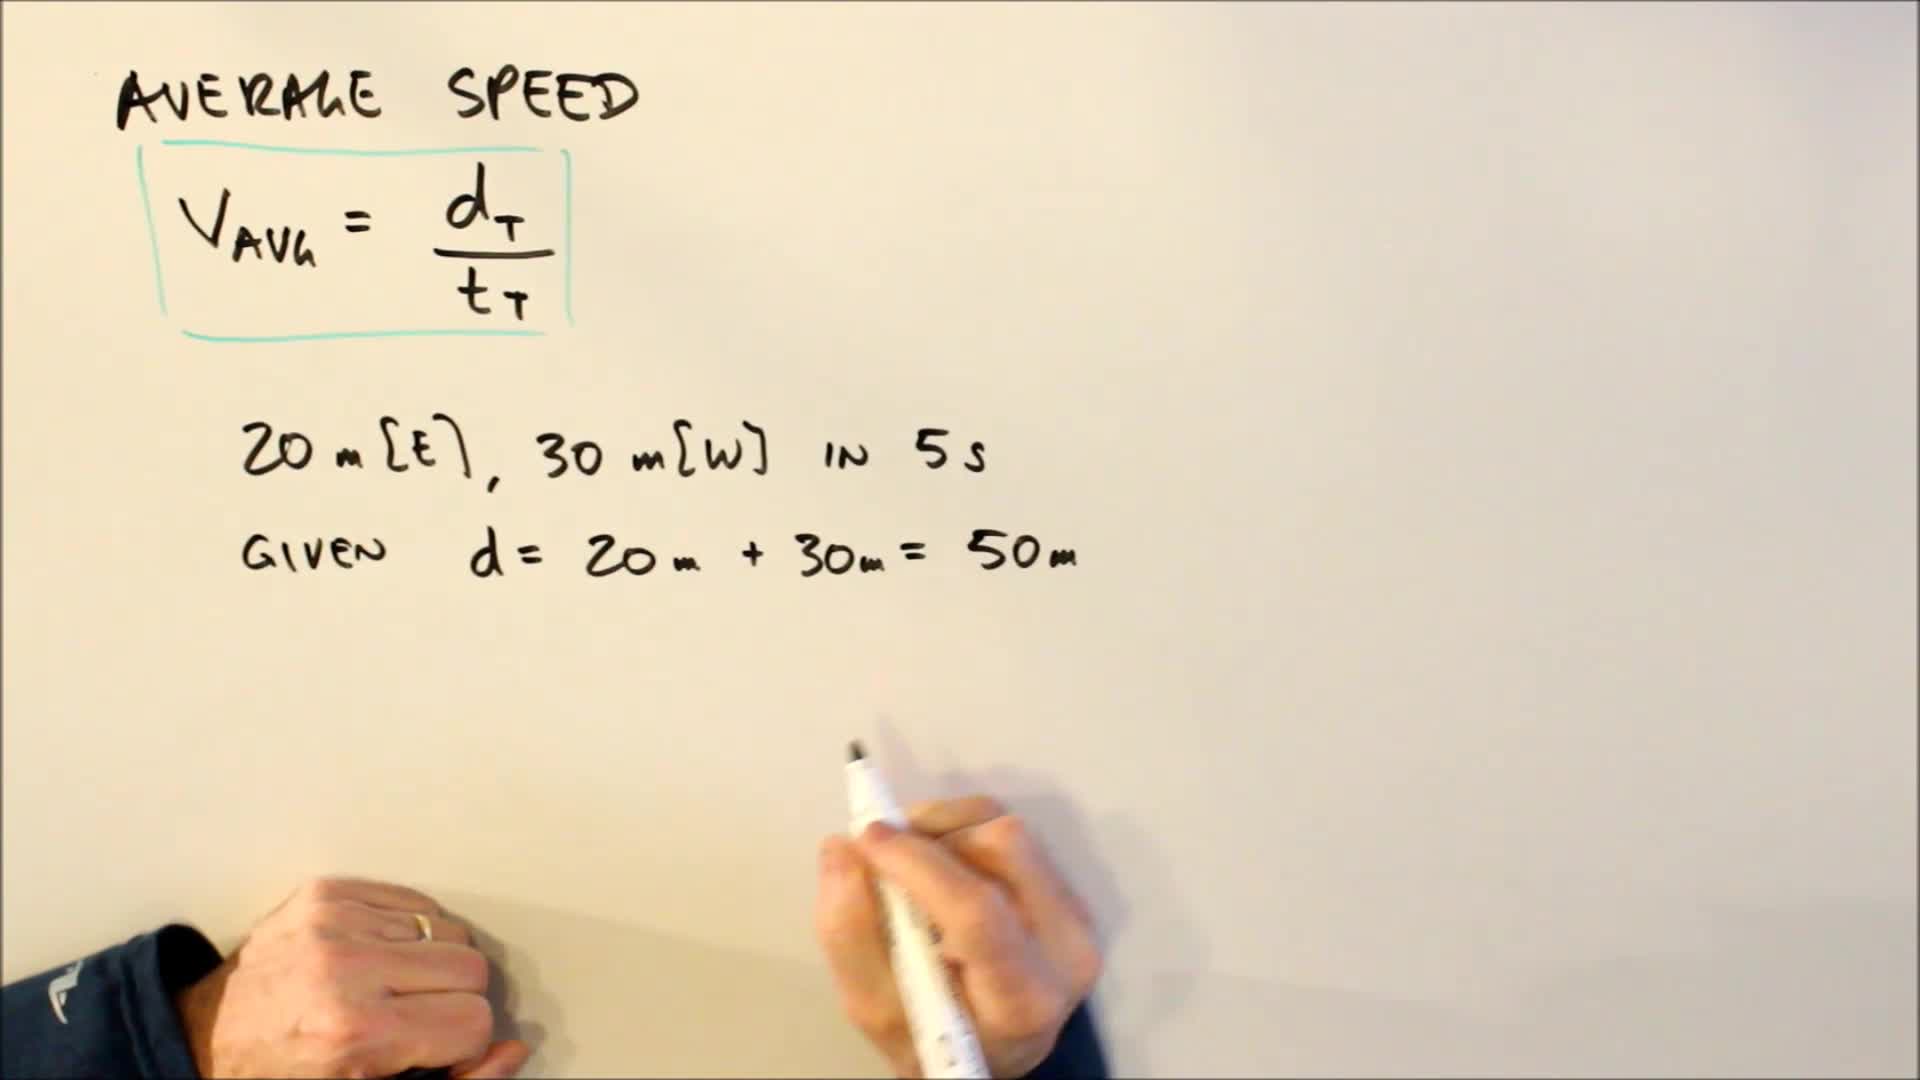 AVERAGE SPEED
VAVG = dT / tT
20 m [E], 30 m [W] IN 5 s
GIVEN d = 20 m + 30 m = 50 m